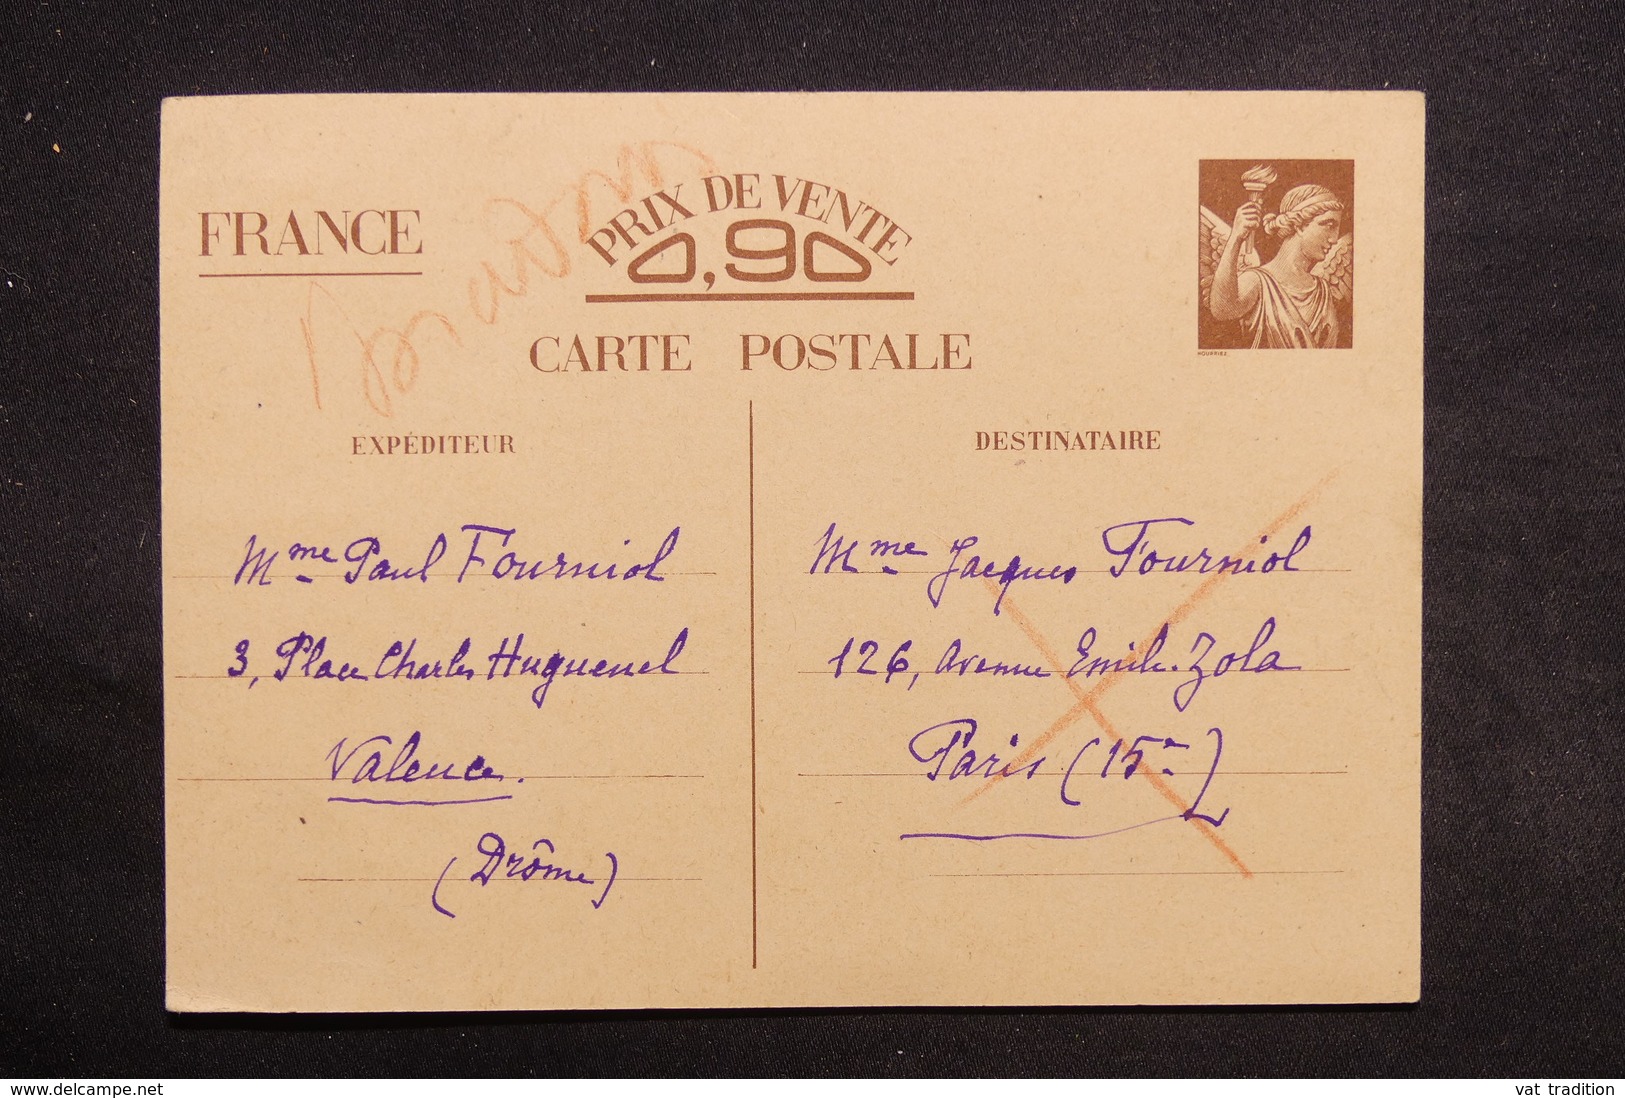 FRANCE
PRIX DE VENTE
0,90
CARTE POSTALE
HOURRIEZ
EXPÉDITEUR
Mme Paul Fourniol
3, Place Charles Huguenel
Valence.
(Drôme)
DESTINATAIRE
Mme Jacques Fourniol
126, Avenue Emile-Zola
Paris (15e)
www.delcampe.net
vat tradition